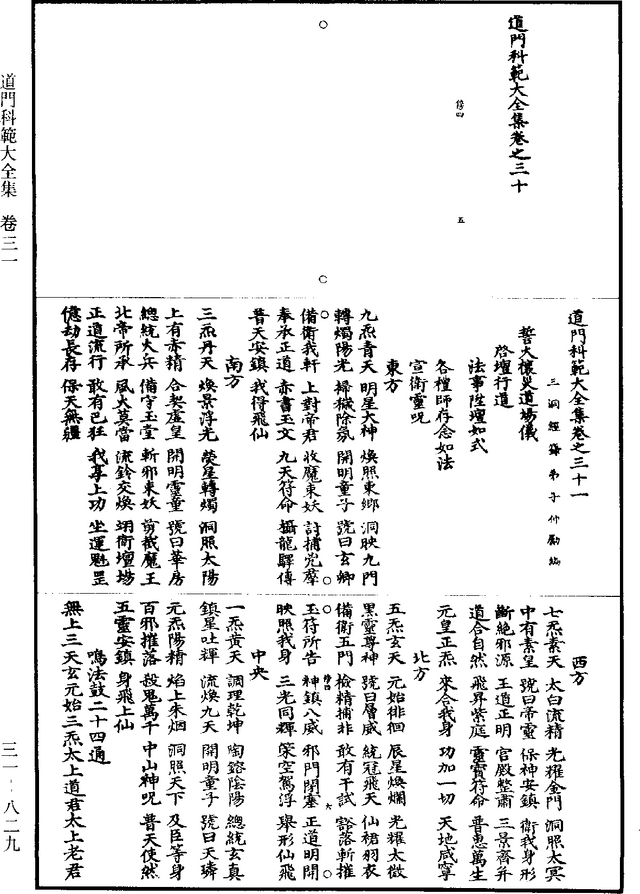 道門科範大全集卷之三十
傍四
五
道門科範大全集卷之三十一
三洞經籙弟子仲勵編
誓火禳災道場儀
啓壇行道
法事陞壇如式
各禮師存念如法
宣衛靈呪
東方
九炁青天 明星大神 煥照東鄉 洞映九門
轉燭陽光 掃穢除氛 開明童子 號曰玄卿
備衛我軒 上對帝君 收魔束妖 討捕兇羣
奉承正道 赤書玉文 九天符命 攝龍驛傳
普天安鎮 我得飛仙
南方
三炁丹天 煥景浮光 熒星轉燭 洞照太陽
上有赤精 合契虛皇 開明靈童 號曰華房
總統火兵 備守玉堂 斬邪束妖 剪截魔王
北帝所承 風火莫當 流鈴交煥 翊衛壇場
正道流行 敢有巴狂 我享上功 坐運魁罡
億劫長存 保天無疆
西方
七炁素天 太白流精 光耀金門 洞照太冥
中有素皇 號曰帝靈 保神安鎮 衛我身形
斷絕邪源 王道正明 宮殿整肅 三景齊并
道合自然 飛昇紫庭 靈寶符命 普惠萬生
元皇正炁 來合我身 功加一切 天地咸寧
北方
五炁玄天 元始徘徊 辰星煥爛 光耀太微
黑靈尊神 號曰層威 統冠飛天 仙裙羽衣
備衛五門 檢精捕非 敢有干試 豁落斬摧
傍四
六
玉符所告 神鎮八威 邪門閉塞 正道明開
映照我身 三光同輝 策空駕浮 舉形仙飛
中央
一炁黃天 調理乾坤 陶鎔陰陽 總統玄真
鎮星吐輝 流煥九天 開明童子 號曰天璘
元炁陽精 焰上朱烟 洞照天下 及臣等身
百邪摧落 殺鬼萬千 中山神呪 普天使然
五靈安鎮 身飛上仙
鳴法鼓二十四通
無上三天玄元始三炁太上道君太上老君
道門科範大全集 卷三一
三一-八二九